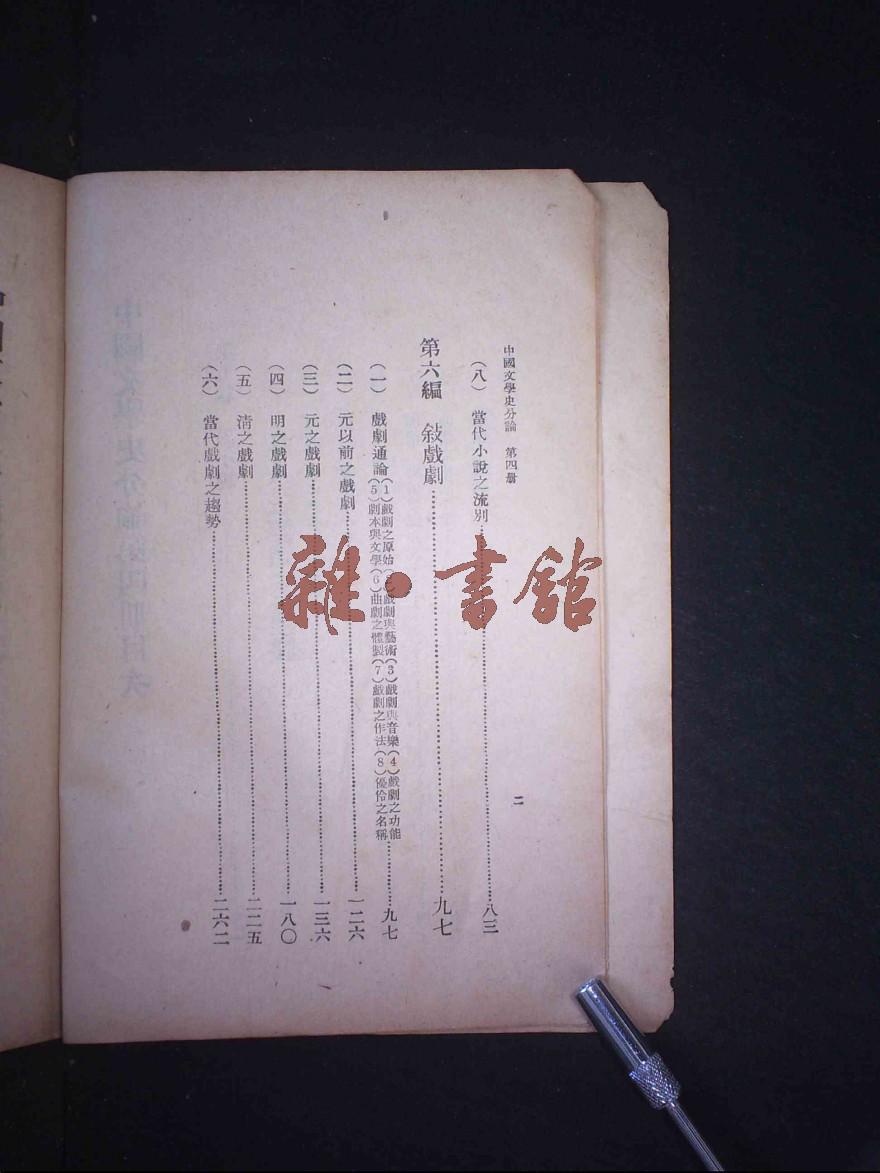 中國文學史分論 第四册
二
(八) 當代小說之流別……八三
第六編 敍戲劇……九七
(一) 戲劇通論(1)戲劇之原始(2)戲劇與藝術(3)戲劇與音樂(4)戲劇之功能
(5)劇本與文學(6)曲劇之體製(7)戲劇之作法(8)優伶之名稱……九七
(二) 元以前之戲劇……一二六
(三) 元之戲劇……一三六
(四) 明之戲劇……一八〇
(五) 清之戲劇……二二五
(六) 當代戲劇之趨勢……二六二
雜·書館